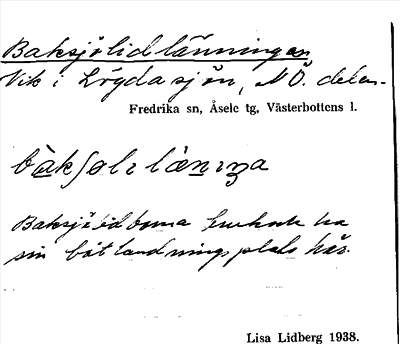 Baksjölidlänningen
Vik i Lögdasjön, NÖ. delen.
Fredrika sn, Åsele tg, Västerbottens l.
bàkʃøliläniŋa
Baksjölidborna brukade ha
sin båtlandningsplats här.
Lisa Lidberg 1938.